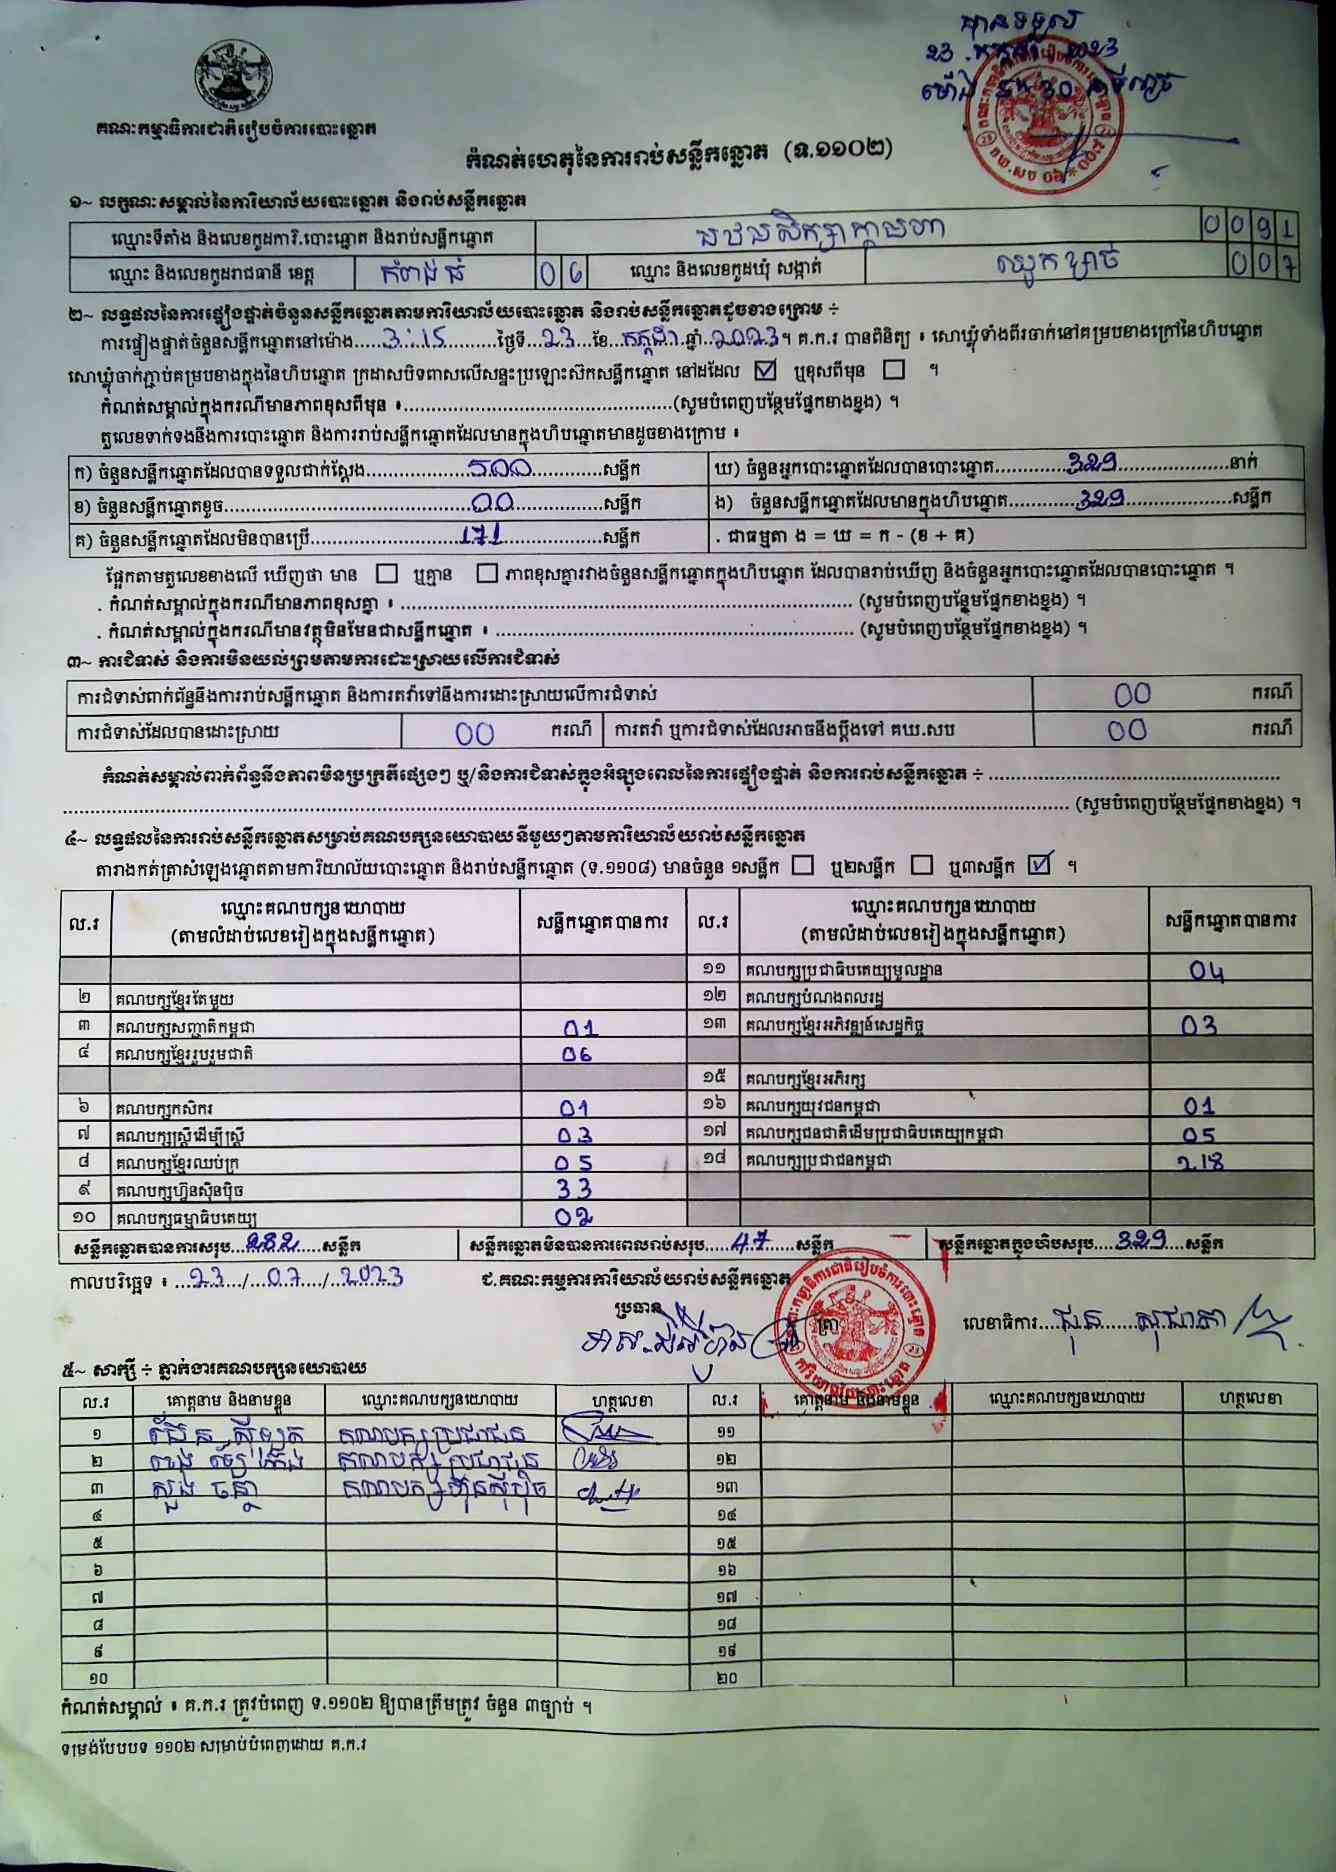 បានទទួល
23 កក្កដា 2023
គណៈកម្មាធិការជាតិរៀបចំការបោះឆ្នោត
កំណត់ហេតុនៃការរាប់សន្លឹកឆ្នោត (ទ.១១០២)
១~ លក្ខណៈសម្គាល់នៃការិយាល័យបោះឆ្នោត និងរាប់សន្លឹកឆ្នោត
ឈ្មោះទីតាំង និងលេខកូដការិ.បោះឆ្នោត និងរាប់សន្លឹកឆ្នោត 0091
ឈ្មោះ និងលេខកូដរាជធានី ខេត្ត កំពង់ធំ 06 ឈ្មោះ និងលេខកូដឃុំ សង្កាត់ ឈូកខ្សាច់ 007
២~ លទ្ធផលនៃការផ្ទៀងផ្ទាត់ចំនួនសន្លឹកឆ្នោតតាមការិយាល័យបោះឆ្នោត និងរាប់សន្លឹកឆ្នោតដូចខាងក្រោម ÷
ការផ្ទៀងផ្ទាត់ចំនួនសន្លឹកឆ្នោតនៅម៉ោង 3:15 ថ្ងៃទី 23 ខែ កក្កដា ឆ្នាំ 2023 ។ គ.ក.រ បានពិនិត្យ ៖ សោឃ្លុំទាំងពីរចាក់នៅគម្របខាងក្រៅនៃហិបឆ្នោត
សោឃ្លុំចាក់ភ្ជាប់គម្របខាងក្នុងនៃហិបឆ្នោត ក្រដាសបិទពាសលើសន្ទះប្រឡោះស៊កសន្លឹកឆ្នោត នៅដដែល ☑ ឬខុសពីមុន ☐ ។
កំណត់សម្គាល់ក្នុងករណីមានភាពខុសពីមុន ៖ (សូមបំពេញបន្ថែមផ្នែកខាងខ្នង) ។
តួលេខទាក់ទងនឹងការបោះឆ្នោត និងការរាប់សន្លឹកឆ្នោតដែលមានក្នុងហិបឆ្នោតមានដូចខាងក្រោម ៖
ក) ចំនួនសន្លឹកឆ្នោតដែលបានទទួលជាក់ស្តែង 500 សន្លឹក ឃ) ចំនួនអ្នកបោះឆ្នោតដែលបានបោះឆ្នោត 329 នាក់
ខ) ចំនួនសន្លឹកឆ្នោតខូច 00 សន្លឹក ង) ចំនួនសន្លឹកឆ្នោតដែលមានក្នុងហិបឆ្នោត 329 សន្លឹក
គ) ចំនួនសន្លឹកឆ្នោតដែលមិនបានប្រើ 171 សន្លឹក . ជាធម្មតា ង = ឃ = ក - (ខ + គ)
ផ្អែកតាមតួលេខខាងលើ ឃើញថា មាន ☐ ឬគ្មាន ☐ ភាពខុសគ្នារវាងចំនួនសន្លឹកឆ្នោតក្នុងហិបឆ្នោត ដែលបានរាប់ឃើញ និងចំនួនអ្នកបោះឆ្នោតដែលបានបោះឆ្នោត ។
. កំណត់សម្គាល់ក្នុងករណីមានភាពខុសគ្នា ៖ (សូមបំពេញបន្ថែមផ្នែកខាងខ្នង) ។
. កំណត់សម្គាល់ក្នុងករណីមានវត្ថុមិនមែនជាសន្លឹកឆ្នោត ៖ (សូមបំពេញបន្ថែមផ្នែកខាងខ្នង) ។
៣~ ការជំទាស់ និងការមិនយល់ព្រមតាមការដោះស្រាយលើការជំទាស់
ការជំទាស់ពាក់ព័ន្ធនឹងការរាប់សន្លឹកឆ្នោត និងការតវ៉ាទៅនឹងការដោះស្រាយលើការជំទាស់ 00 ករណី
ការជំទាស់ដែលបានដោះស្រាយ 00 ករណី ការតវ៉ា ឬការជំទាស់ដែលអាចនឹងប្តឹងទៅ គឃ.សប 00 ករណី
កំណត់សម្គាល់ពាក់ព័ន្ធនឹងភាពមិនប្រក្រតីផ្សេងៗ ឬ/និងការជំទាស់ក្នុងអំឡុងពេលនៃការផ្ទៀងផ្ទាត់ និងការរាប់សន្លឹកឆ្នោត ÷
(សូមបំពេញបន្ថែមផ្នែកខាងខ្នង) ។
៤~ លទ្ធផលនៃការរាប់សន្លឹកឆ្នោតសម្រាប់គណបក្សនយោបាយនីមួយៗតាមការិយាល័យរាប់សន្លឹកឆ្នោត
តារាងកត់ត្រាសំឡេងឆ្នោតតាមការិយាល័យបោះឆ្នោត និងរាប់សន្លឹកឆ្នោត (ទ.១១០៨) មានចំនួន ១សន្លឹក ☐ ឬ២សន្លឹក ☐ ឬ៣សន្លឹក ☑ ។
ល.រ ឈ្មោះគណបក្សនយោបាយ (តាមលំដាប់លេខរៀងក្នុងសន្លឹកឆ្នោត) សន្លឹកឆ្នោតបានការ ល.រ ឈ្មោះគណបក្សនយោបាយ (តាមលំដាប់លេខរៀងក្នុងសន្លឹកឆ្នោត) សន្លឹកឆ្នោតបានការ
១១ គណបក្សប្រជាធិបតេយ្យមូលដ្ឋាន 04
២ គណបក្សខ្មែរតែមួយ ១២ គណបក្សបំណងពលរដ្ឋ
៣ គណបក្សសញ្ជាតិកម្ពុជា 01 ១៣ គណបក្សខ្មែរអភិវឌ្ឍន៍សេដ្ឋកិច្ច 03
៤ គណបក្សខ្មែររួបរួមជាតិ 06
១៥ គណបក្សខ្មែរអភិរក្ស
៦ គណបក្សកសិករ 01 ១៦ គណបក្សយុវជនកម្ពុជា 01
៧ គណបក្សស្ត្រីដើម្បីស្ត្រី 03 ១៧ គណបក្សជនជាតិដើមប្រជាធិបតេយ្យកម្ពុជា 05
៨ គណបក្សខ្មែរឈប់ក្រ 05 ១៨ គណបក្សប្រជាជនកម្ពុជា 218
៩ គណបក្សហ៊្វុនស៊ិនប៉ិច 33
១០ គណបក្សធម្មាធិបតេយ្យ 02
សន្លឹកឆ្នោតបានការសរុប 282 សន្លឹក សន្លឹកឆ្នោតមិនបានការពេលរាប់សរុប 47 សន្លឹក សន្លឹកឆ្នោតក្នុងហិបសរុប 329 សន្លឹក
កាលបរិច្ឆេទ ៖ 23/07/2023 ជ.គណៈកម្មការការិយាល័យរាប់សន្លឹកឆ្នោត
ប្រធាន ត្រា លេខាធិការ
៥~ សាក្សី ÷ ភ្នាក់ងារគណបក្សនយោបាយ
ល.រ គោត្តនាម និងនាមខ្លួន ឈ្មោះគណបក្សនយោបាយ ហត្ថលេខា ល.រ គោត្តនាម និងនាមខ្លួន ឈ្មោះគណបក្សនយោបាយ ហត្ថលេខា
១ គណបក្សប្រជាជន ១១
២ គណបក្សប្រជាជន ១២
៣ គណបក្សហ៊្វុនស៊ិនប៉ិច ១៣
៤ ១៤
៥ ១៥
៦ ១៦
៧ ១៧
៨ ១៨
៩ ១៩
១០ ២០
កំណត់សម្គាល់ ៖ គ.ក.រ ត្រូវបំពេញ ទ.១១០២ ឱ្យបានត្រឹមត្រូវ ចំនួន ៣ច្បាប់ ។
ទម្រង់បែបបទ ១១០២ សម្រាប់បំពេញដោយ គ.ក.រ